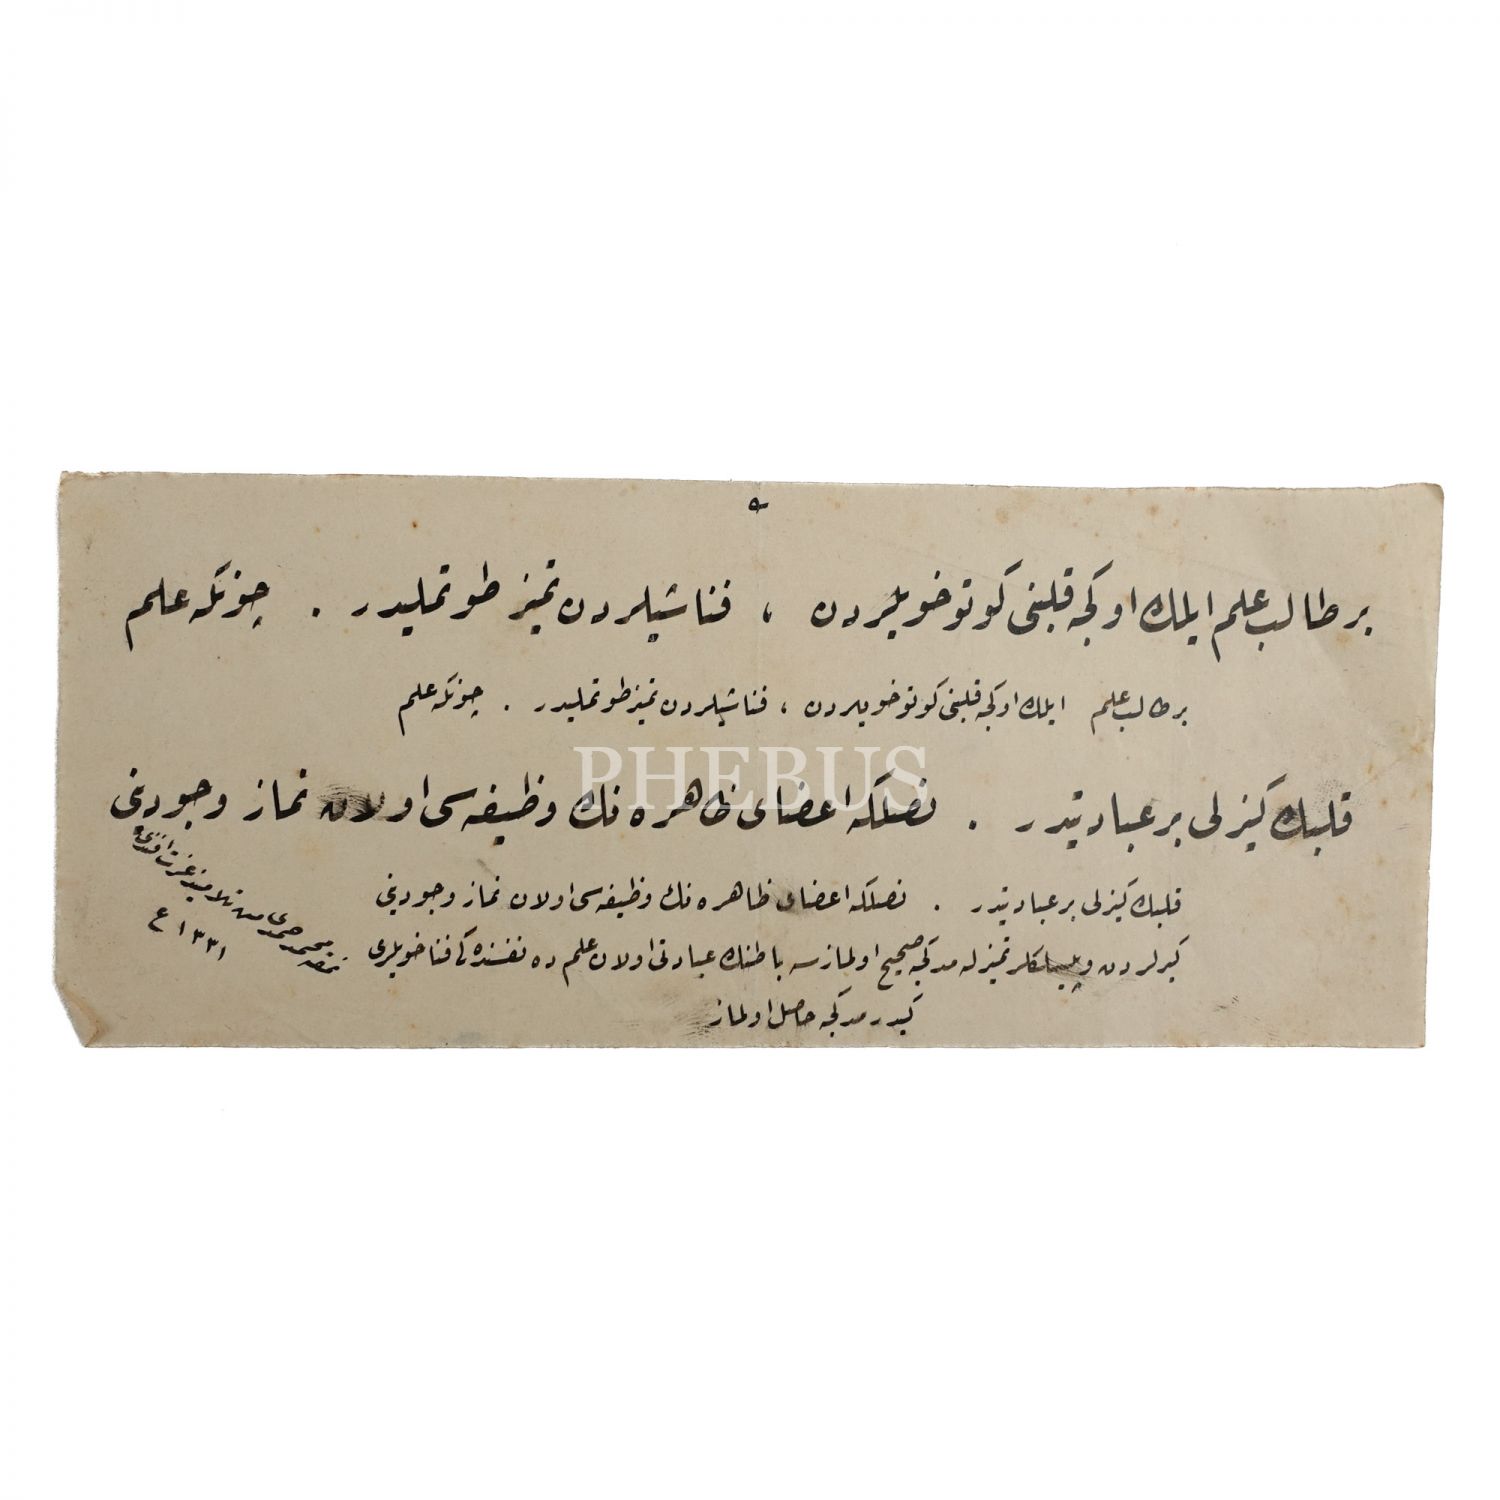 بر طالب علم ایلك اوكجه قلبنی كوتو خویلردن ، فنا شیلردن تمیز طوتملیدر . چونكه علم
بر طالب علم ایلك اوكجه قلبنی كوتو خویلردن ، فنا شیلردن تمیز طوتملیدر . چونكه علم
PHEBUS
قلبك كیزلی بر عبادتیدر . نصلكه اعضای ظاهره نك وظیفه سی اولان نماز وجودی
قلبك كیزلی بر عبادتیدر . نصلكه اعضای ظاهره نك وظیفه سی اولان نماز وجودینی
كیرلردن و پیسلكلر تمیزلمدكجه صحیح اولمازسه باطنك عبادتی اولان علم ده نفسنده كی فنا خویلری
كیدرمدكجه حاصل اولماز
نمقه محمد حمدی من تلامیذ عزت افندی
۱۳۳۱